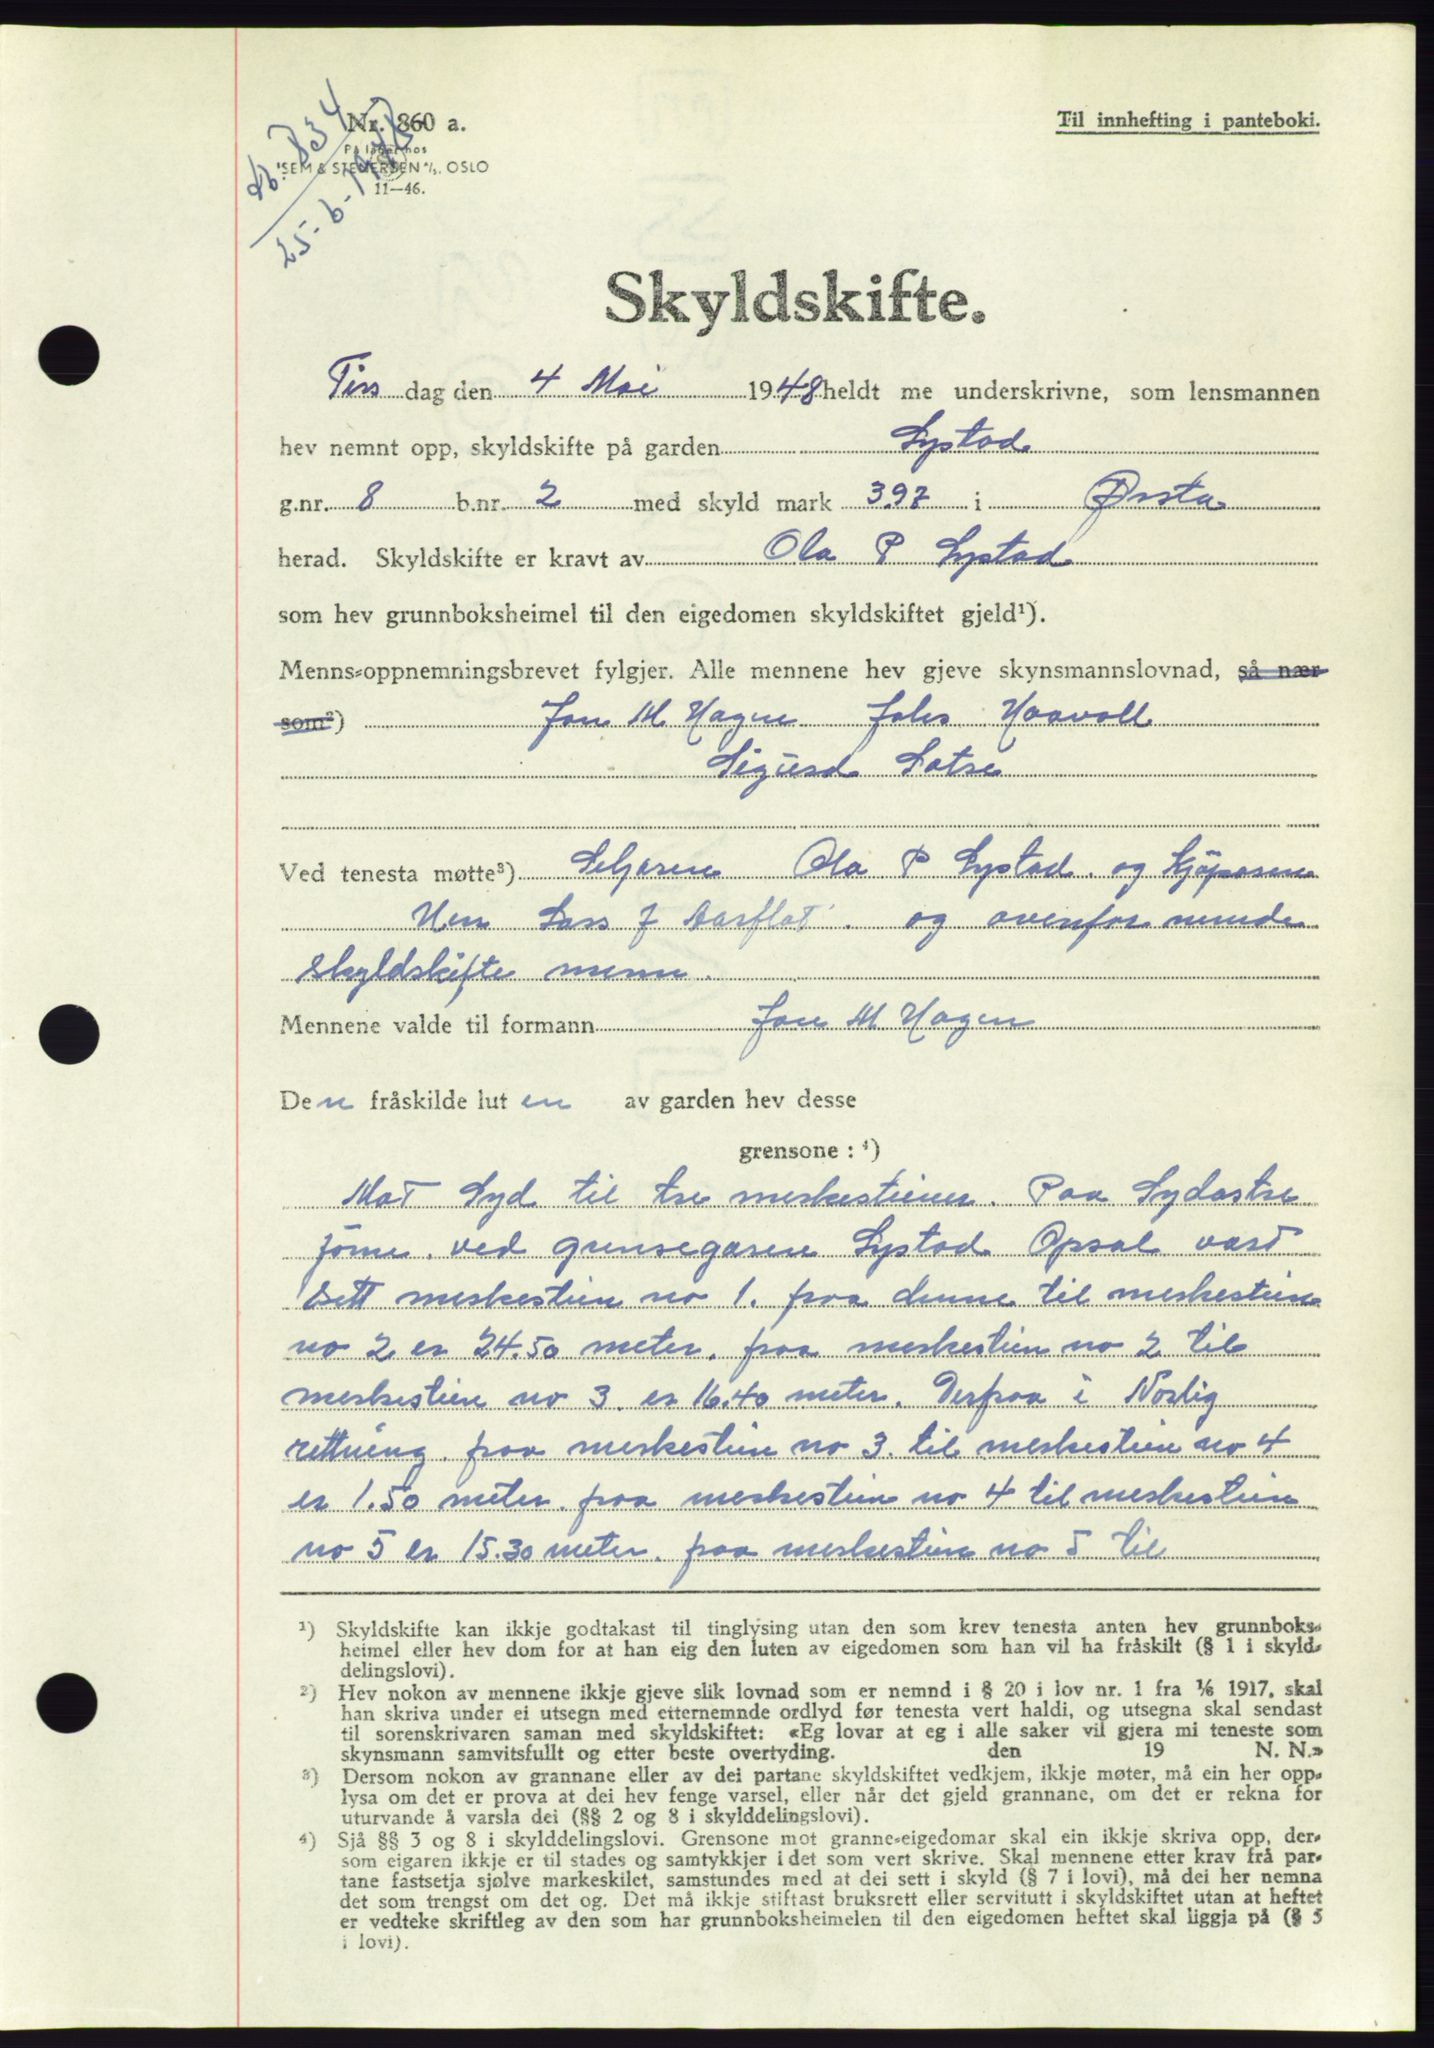 Db. 834
25-6-1948
Nr. 860 a.
På lager hos
SEM & STENERSEN A/S, OSLO
11—46.
Til innhefting i panteboki.
Skyldskifte.
Tirs dag den 4 Mai 1948 heldt me underskrivne, som lensmannen
hev nemnt opp, skyldskifte på garden Systad
g.nr. 8 b.nr. 2 med skyld mark 3.97 i Ørsta
herad. Skyldskifte er kravt av Ola P Systad
som hev grunnboksheimel til den eigedomen skyldskiftet gjeld¹).
Menns-oppnemningsbrevet fylgjer. Alle mennene hev gjeve skynsmannslovnad, så nær
som²) Jon M Hagen Johs Haavoll
Sigurd Sætre
Ved tenesta møtte³) Seljaren Ola P Systad. og Kjöparen
Herr Lars J Aarflot. og ovenfor nemnde
skyldskifte menn.
Mennene valde til formann Jon M Hagen
Den fråskilde luten av garden hev desse
grensone : ⁴)
Mot Syd til tre merkesteiner. Paa Sydøstre
jörne. ved grensegaren Systad Opsal vart
sett merkestein no 1. fraa denne til merkestein
no 2 er 24.50 meter. fraa merkestein no 2 til
merkestein no 3. er 16.40 meter. Derfraa i Norlig
rettning. fraa merkestein no 3. til merkestein no 4
er 1.50 meter. fraa merkestein no 4 til merkestein
no 5 er 15.30 meter. fraa merkestein no 5 til
¹) Skyldskifte kan ikkje godtakast til tinglysing utan den som krev tenesta anten hev grunnboks-
heimel eller hev dom for at han eig den luten av eigedomen som han vil ha fråskilt (§ 1 i skyld-
delingslovi).
²) Hev nokon av mennene ikkje gjeve slik lovnad som er nemnd i § 20 i lov nr. 1 fra 1/6 1917, skal
han skriva under ei utsegn med etternemnde ordlyd før tenesta vert haldi, og utsegna skal sendast
til sorenskrivaren saman med skyldskiftet: «Eg lovar at eg i alle saker vil gjera mi teneste som
skynsmann samvitsfullt og etter beste overtyding. den 19 N. N.»
³) Dersom nokon av grannane eller av dei partane skyldskiftet vedkjem, ikkje møter, må ein her opp-
lysa om det er prova at dei hev fenge varsel, eller når det gjeld grannane, om det er rekna for
uturvande å varsla dei (§§ 2 og 8 i skylddelingslovi).
⁴) Sjå §§ 3 og 8 i skylddelingslovi. Grensone mot granne-eigedomar skal ein ikkje skriva opp, der-
som eigaren ikkje er til stades og samtykkjer i det som vert skrive. Skal mennene etter krav frå par-
tane fastsetja sjølve markeskilet, samstundes med at dei sett i skyld (§ 7 i lovi), må dei her nemna
det som trengst om det og. Det må ikkje stiftast bruksrett eller servitutt i skyldskiftet utan at heftet
er vedteke skriftleg av den som har grunnboksheimelen til den eigedomen heftet skal liggja på (§ 5
i lovi).